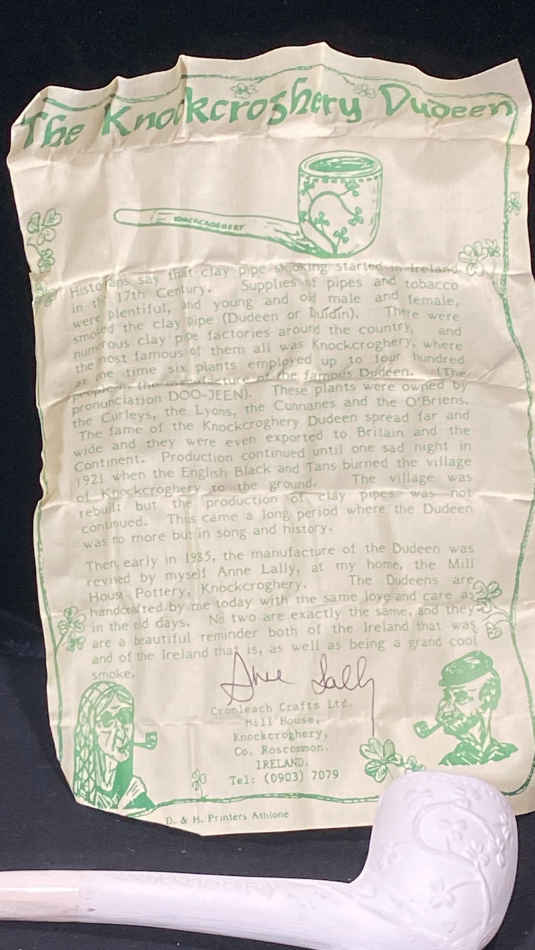 The Knockcroghery Dudeen
KNOCKCROGHERY
Historians say that clay pipe smoking started in Ireland
in the 17th Century. Supplies of pipes and tobacco
were plentiful, and young and old male and female,
smoked the clay pipe (Dudeen or Duidin). There were
numerous clay pipe factories around the country, and
the most famous of them all was Knockcroghery, where
at one time six plants employed up to four hundred
people in the manufacture of the famous Dudeen. (The
pronunciation DOO-JEEN). These plants were owned by
the Curleys, the Lyons, the Cunnanes and the O'Briens.
The fame of the Knockcroghery Dudeen spread far and
wide and they were even exported to Britain and the
Continent. Production continued until one sad night in
1921 when the English Black and Tans burned the village
of Knockcroghery to the ground. The village was
rebuilt but the production of clay pipes was not
continued. Thus came a long period where the Dudeen
was no more but in song and history.
Then early in 1985, the manufacture of the Dudeen was
revived by myself Anne Lally, at my home, the Mill
House Pottery, Knockcroghery. The Dudeens are
handcrafted by me today with the same love and care as
in the old days. No two are exactly the same, and they
are a beautiful reminder both of the Ireland that was
and of the Ireland that is, as well as being a grand cool
smoke.
Anne Lally
Cronleach Crafts Ltd.
Mill House,
Knockcroghery,
Co. Roscommon.
IRELAND.
Tel: (0903) 7079
D. & H. Printers Athlone